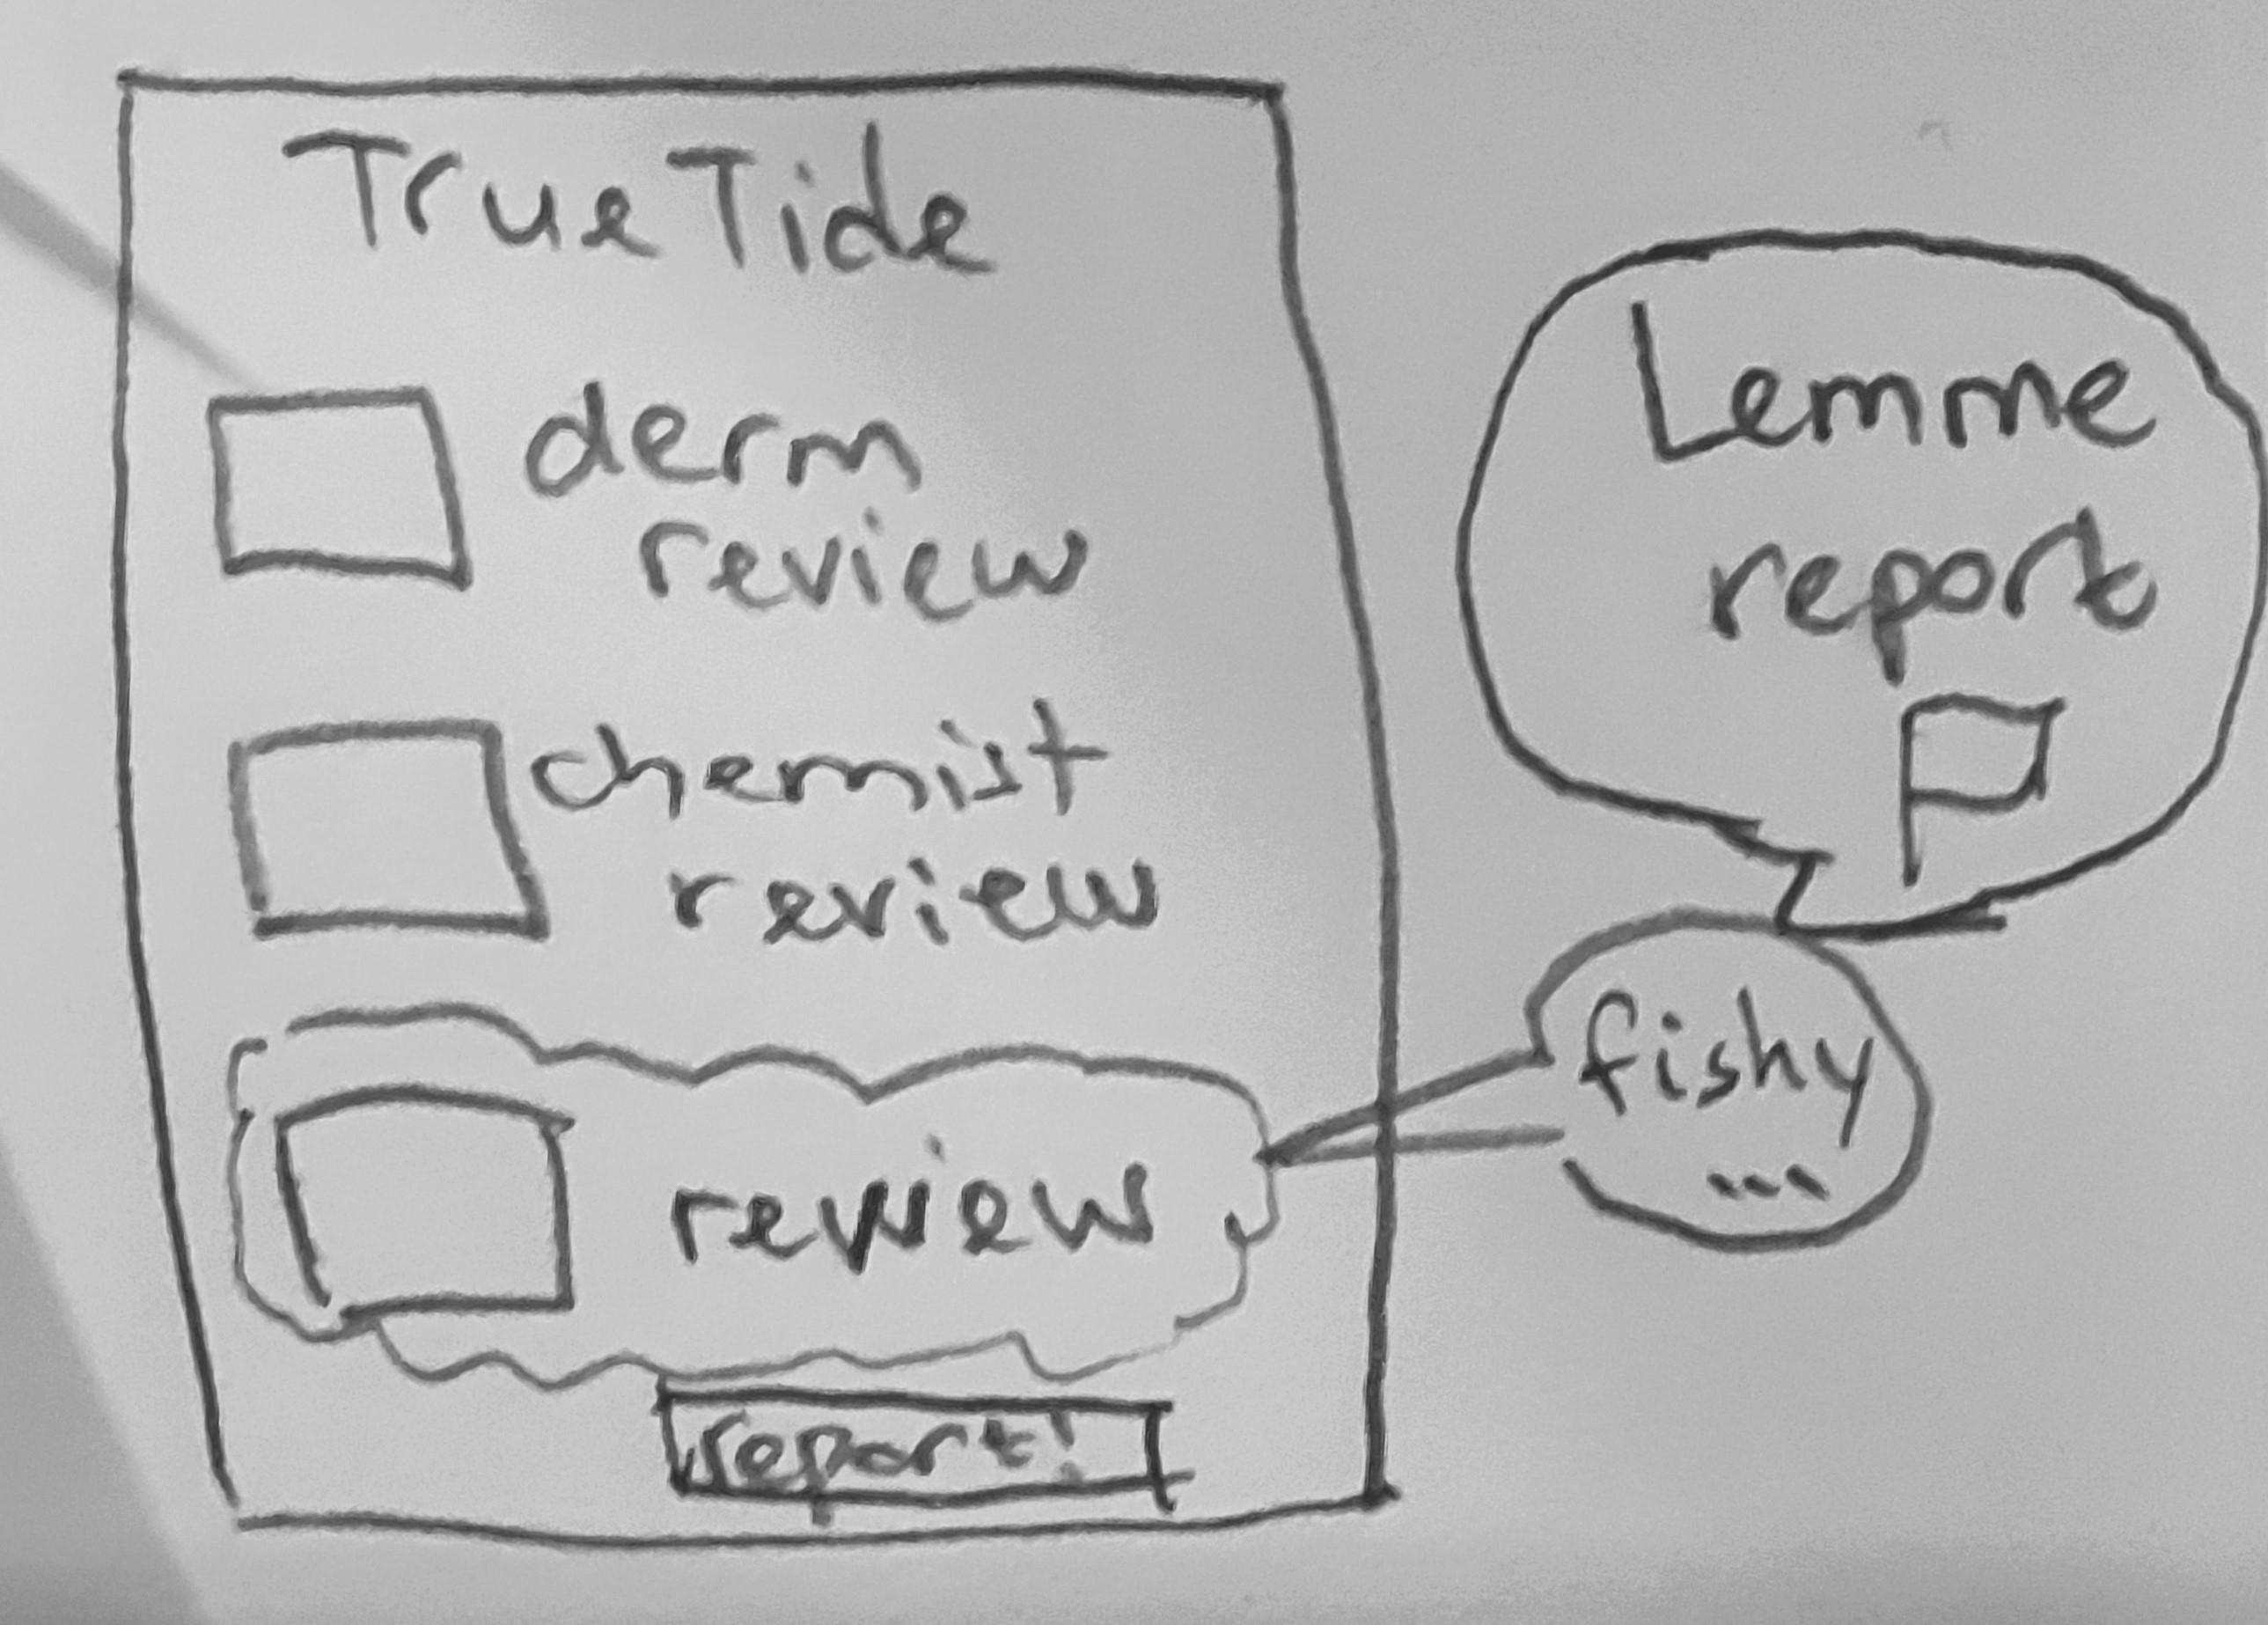 True Tide
derm
review
chemist
review
review
report!
Lemme
report
fishy
...